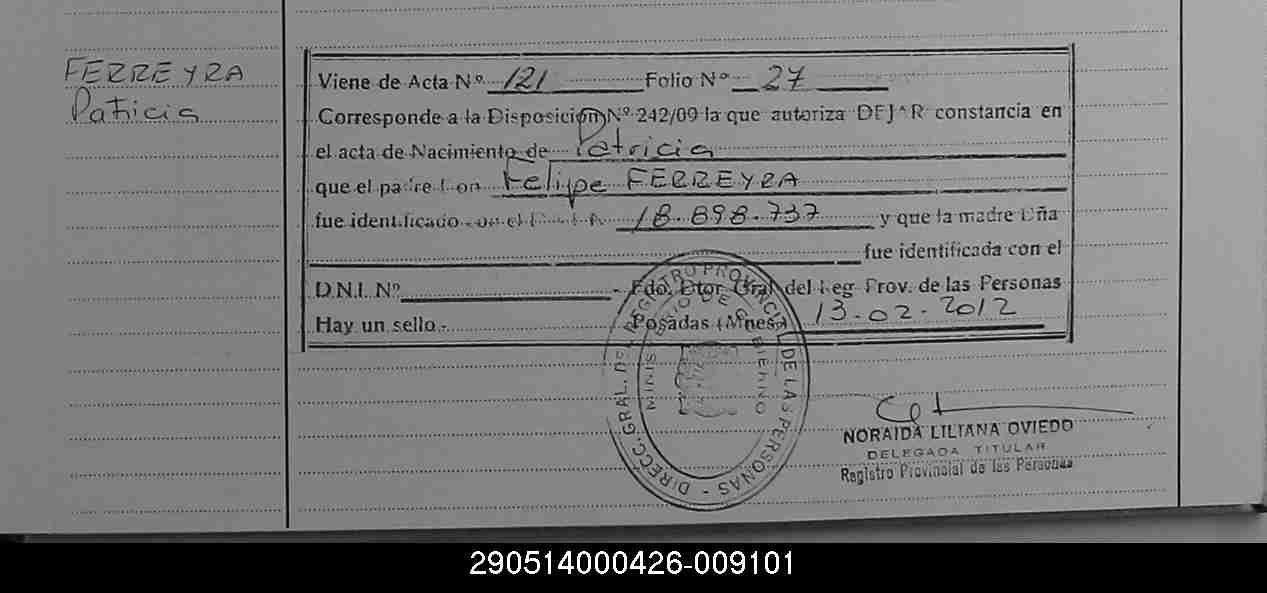 FERREYRA
Patricia
Viene de Acta Nº 121 Folio Nº 27
Corresponde a la Disposición Nº 242/09 la que autoriza DEJAR constancia en
el acta de Nacimiento de Patricia
que el padre Don Felipe FERREYRA
fue identificado con el 18.898.737 y que la madre Dña
fue identificada con el
D.N.I. Nº - Fdo. Dtor Gral del Reg Prov. de las Personas
Hay un sello.- Posadas (Mnes) 13-02-2012
DIRECC. GRAL. DEL REGISTRO PROVINCIAL DE LAS PERSONAS -
MINISTERIO DE GOBIERNO
NORAIDA LILIANA OVIEDO
DELEGADA TITULAR
Registro Provincial de las Personas
290514000426-009101